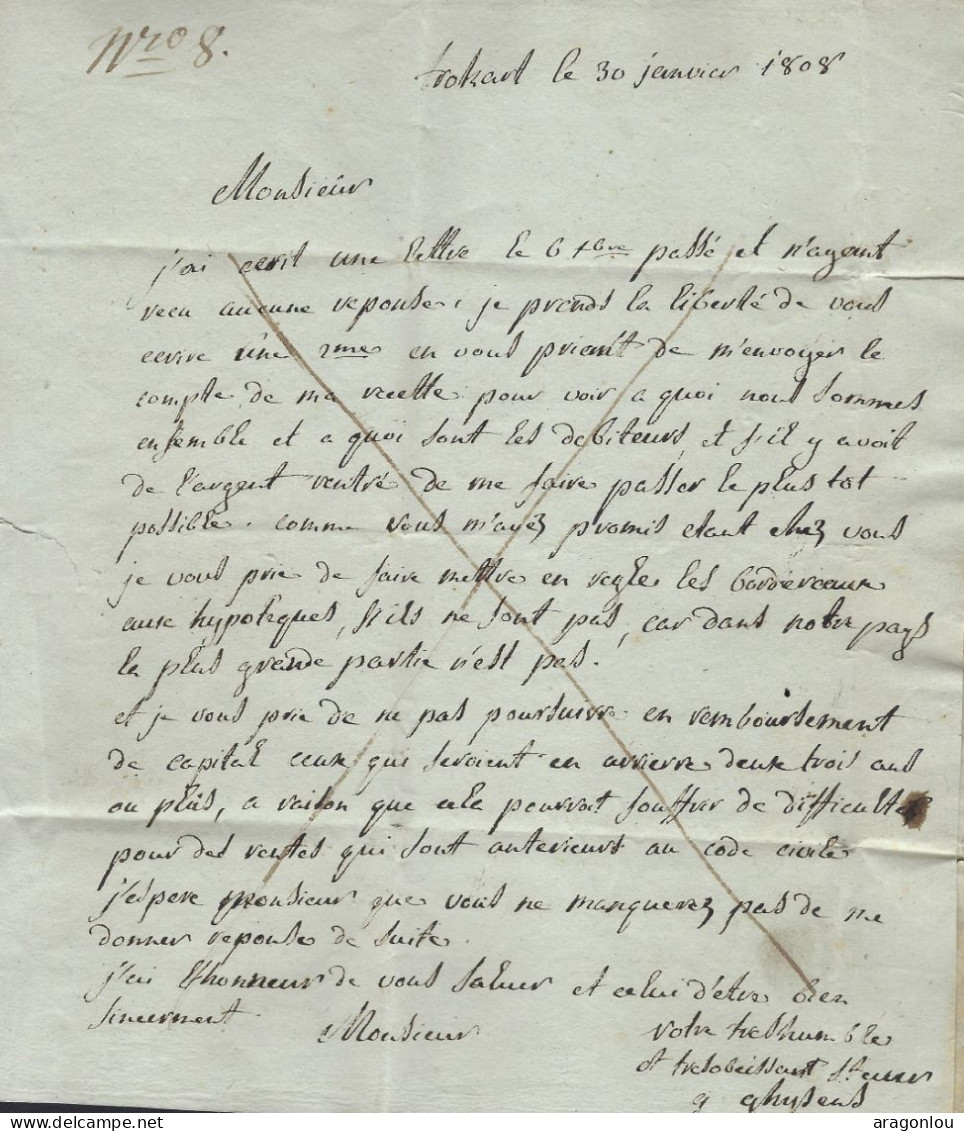 Nro 8.
le 30 janvier 1808
Monsieur
j'ai ecrit une lettre le 6 xbre passé et n'ayant
recu aucune reponse, je prends la liberté de vous
ecrire une 2me en vous priant de m'envoyer le
compte de ma recette pour voir a quoi nous sommes
ensemble et a quoi sont les debiteurs, et s'il y avoit
de l'argent rentré de me faire passer le plus tot
possible. comme vous m'avez promis etant chez vous
je vous prie de faire mettre en regle les bordereaux
aux hypoteques, s'ils ne sont pas, car dans notre pays
la plus grande partie n'est pas.
et je vous prie de ne pas poursuivre en remboursement
de capital ceux qui seroient en arriere deux trois ans
ou plus, a raison que cela pourrat souffrir de difficultes
pour des rentes qui sont anterieurs au code civile
j'espere monsieur que vous ne manquerez pas de me
donner reponse de suite.
j'ai l'honneur de vous saluer et celui d'etre bien
sincerment. Monsieur
votre treshumble
et tresobeissant
g ghysens
aragonlou